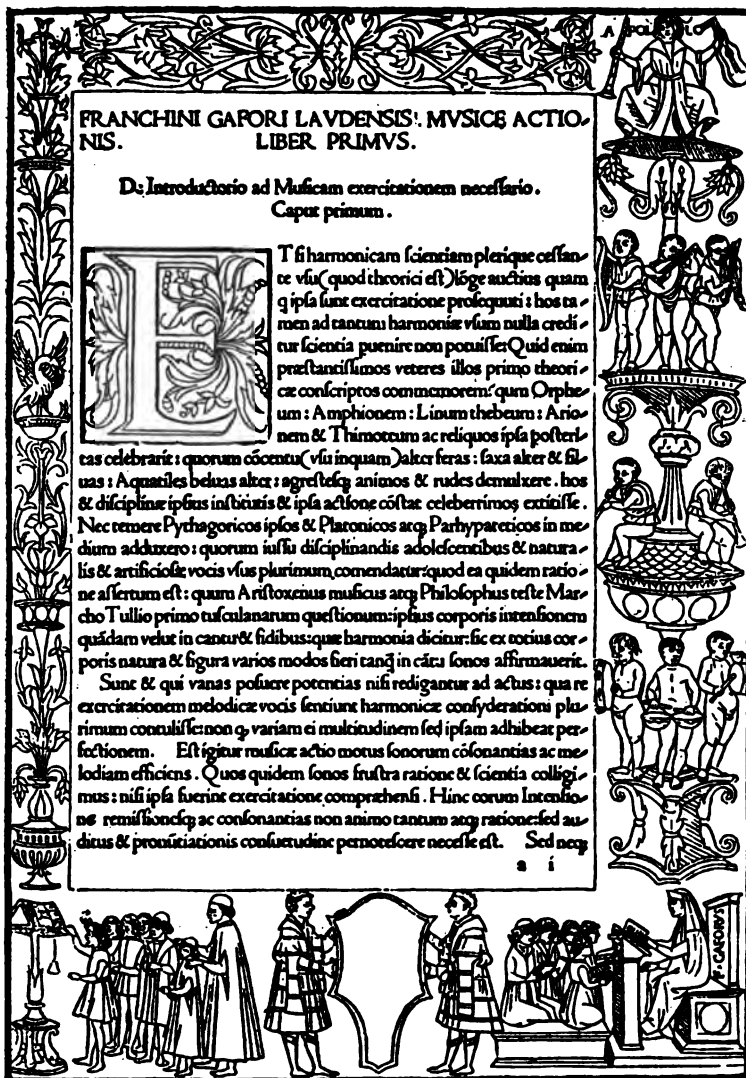 APOLLO
FRANCHINI GAFORI LAVDENSIS. MVSICĘ ACTIO-
NIS. LIBER PRIMVS.
De Introductorio ad Musicam exercitationem necessario.
Caput primum.
ET si harmonicam scientiam plerique cessan-
te vsu (quod theorici est) lõge auctius quam
q ipsa sunt exercitatione prosequuti: hos ta-
men ad tantum harmoniæ vsum nulla credi-
tur scientia puenire non potuisse: Quid enim
præstantissimos veteres illos primo theori-
cæ conscriptos commemorem: qum Orphe-
um: Amphionem: Linum thebeum: Ario-
nem & Thimoteum ac reliquos ipsa posteri-
tas celebrarit: quorum cõcentu (vsu inquam) alter feras: saxa alter & sil-
uas: Aquatiles beluas alter: agrestesq; animos & rudes demulxere. hos
& disciplinæ ipsius institutis & ipsa actione cõstat celeberrimos extitisse.
Nec temere Pythagoricos ipsos & Platonicos atq; Parhypateticos in me-
dium adduxero: quorum iussu disciplinandis adolescentibus & natura-
lis & artificiosæ vocis vsus plurimum comendatur: quod ea quidem ratio-
ne assertum est: quum Aristoxenus musicus atq; Philosophus teste Mar-
cho Tullio primo tusculanarum questionum: ipsius corporis intensionem
quãdam velut in cantu & fidibus: quæ harmonia dicitur: sic ex totius cor-
poris natura & figura varios modos fieri tanq̃ in cãtu sonos affirmauerit.
Sunt & qui vanas posuere potencias nisi redigantur ad actus: qua re
exercitationem melodicæ vocis sentiunt harmonicæ consyderationi plu-
rimum contulisse: non q variam ei multitudinem sed ipsam adhibeat per-
fectionem. Est igitur musicæ actio motus sonorum cõsonantias ac me-
lodiam efficiens. Quos quidem sonos frustra ratione & scientia colligi-
mus: nisi ipsa fuerint exercitatione compræhensi. Hinc eorum Intensio-
nes remissionesq; ac consonantias non animo tantum atq; ratione: sed au-
ditus & pronũtiationis consuetudine pernotescere necesse est. Sed neq;
a i
F. GAFORVS